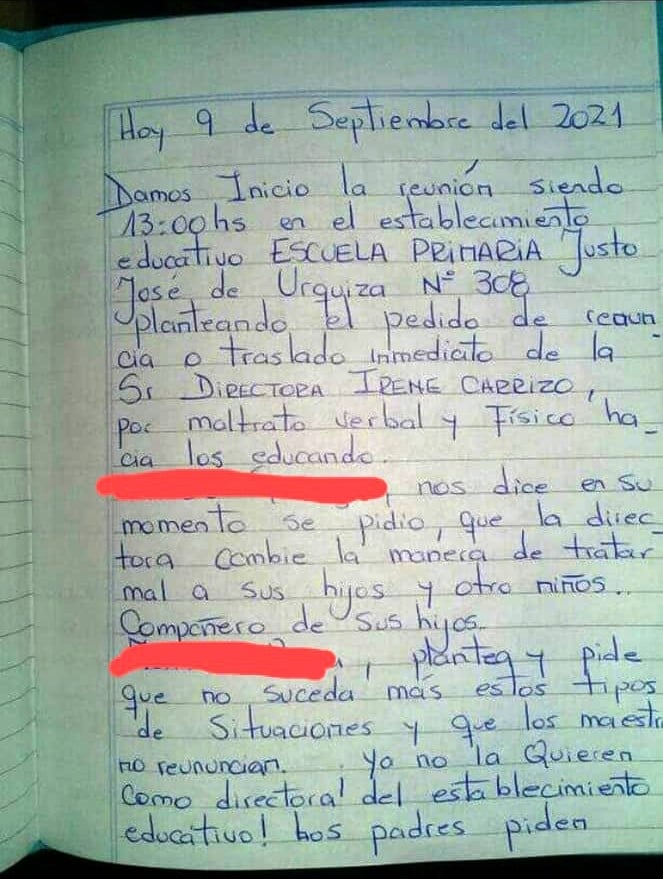 Hoy 9 de Septiembre del 2021
Damos Inicio la reunión siendo
13:00hs en el establecimiento
educativo ESCUELA PRIMARIA Justo
José de Urquiza N° 308
planteando el pedido de renun
cia o traslado inmediato de la
Sr DIRECTORA IRENE CARRIZO,
por maltrato verbal y Físico ha_
cia los educando.
, nos dice en su
momento se pidio, que la direc_
tora cambie la manera de tratar
mal a sus hijos y otro niños..
Compañero de sus hijos.
, plantea y pide
que no suceda más estos tipos
de Situaciones y que los maestr
no reununcian. Ya no la Quieren
Como directora! del establecimiento
educativo! Los padres piden